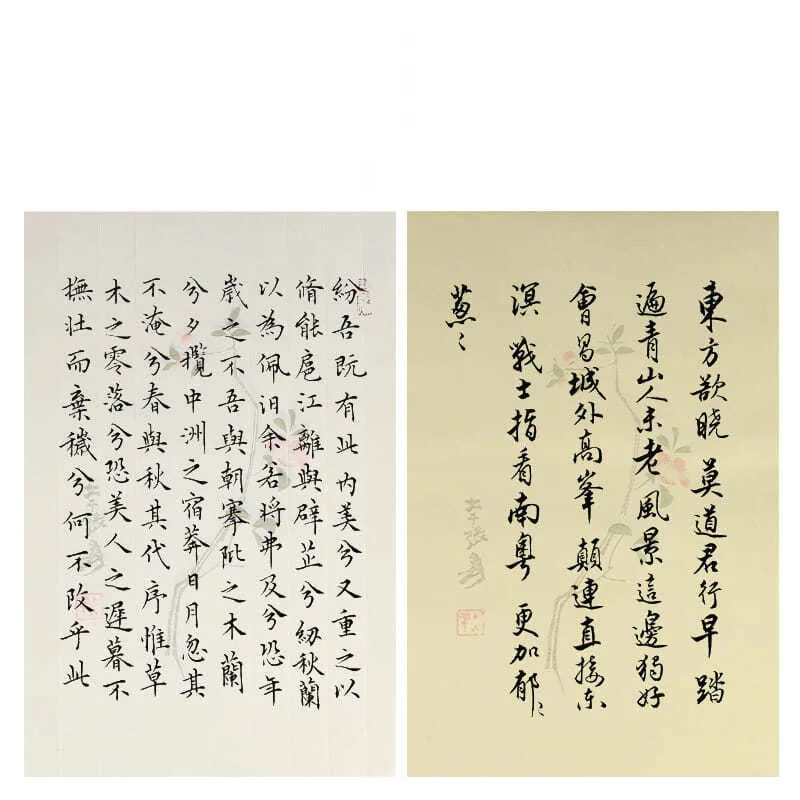 紛吾既有此内美兮又重之以
脩能扈江離與辟芷兮紉秋蘭
以為佩汩余若將弗及兮恐年
歲之不吾與朝搴阰之木蘭
兮夕攬中洲之宿莽日月忽其
不淹兮春與秋其代序惟草
木之零落兮恐美人之遲暮不
撫壯而棄穢兮何不改乎此
東方欲晓 莫道君行早 踏
遍青山人未老 風景這邊獨好
會昌城外高峯 顛連直接东
溟 戰士指看南粵 更加郁〻
蔥〻